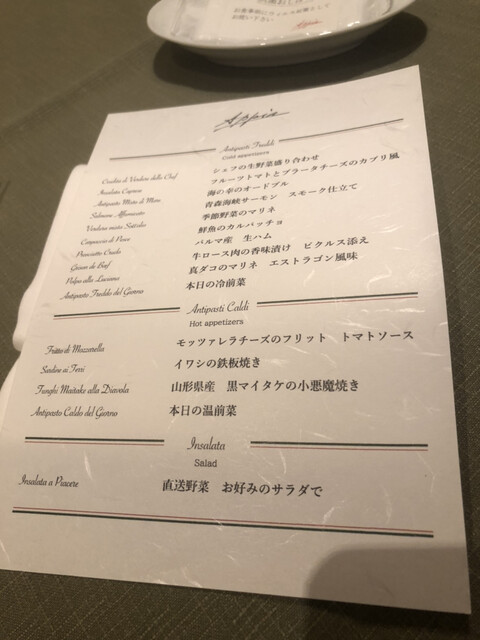 お食事前にウィルス対策として
お使い下さい
Appia
Antipasti Freddi
Cold appetizers
シェフの生野菜盛り合わせ
Insalata Caprese フルーツトマトとブラータチーズのカプリ風
Antipasto Misto di Mare 海の幸のオードブル
Salmone Affumicato 青森海峡サーモン スモーク仕立て
Verdura mista Sottolio 季節野菜のマリネ
Carpaccio di Pesce 鮮魚のカルパッチョ
Prosciutto Crudo パルマ産 生ハム
牛ロース肉の香味漬け ピクルス添え
Polpo alla Luciana 真ダコのマリネ エストラゴン風味
Antipasto Freddo del Giorno 本日の冷前菜
Antipasti Caldi
Hot appetizers
Fritto di Mozzarella モッツァレラチーズのフリット トマトソース
Sardine ai Ferri イワシの鉄板焼き
Funghi Maitake alla Diavola 山形県産 黒マイタケの小悪魔焼き
Antipasto Caldo del Giorno 本日の温前菜
Insalata
Salad
Insalata a Piacere 直送野菜 お好みのサラダで